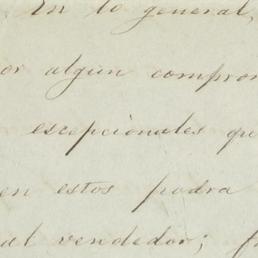 En lo general,
or algun compro
escepcionales qu
en estos podra
al vendedor;